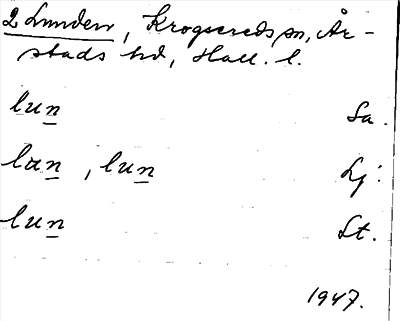 2 Lunden, Krogsereds sn, År-
stads hd, Hall. l.
lun Sa.
lan, lun Lj.
lun St.
1947.